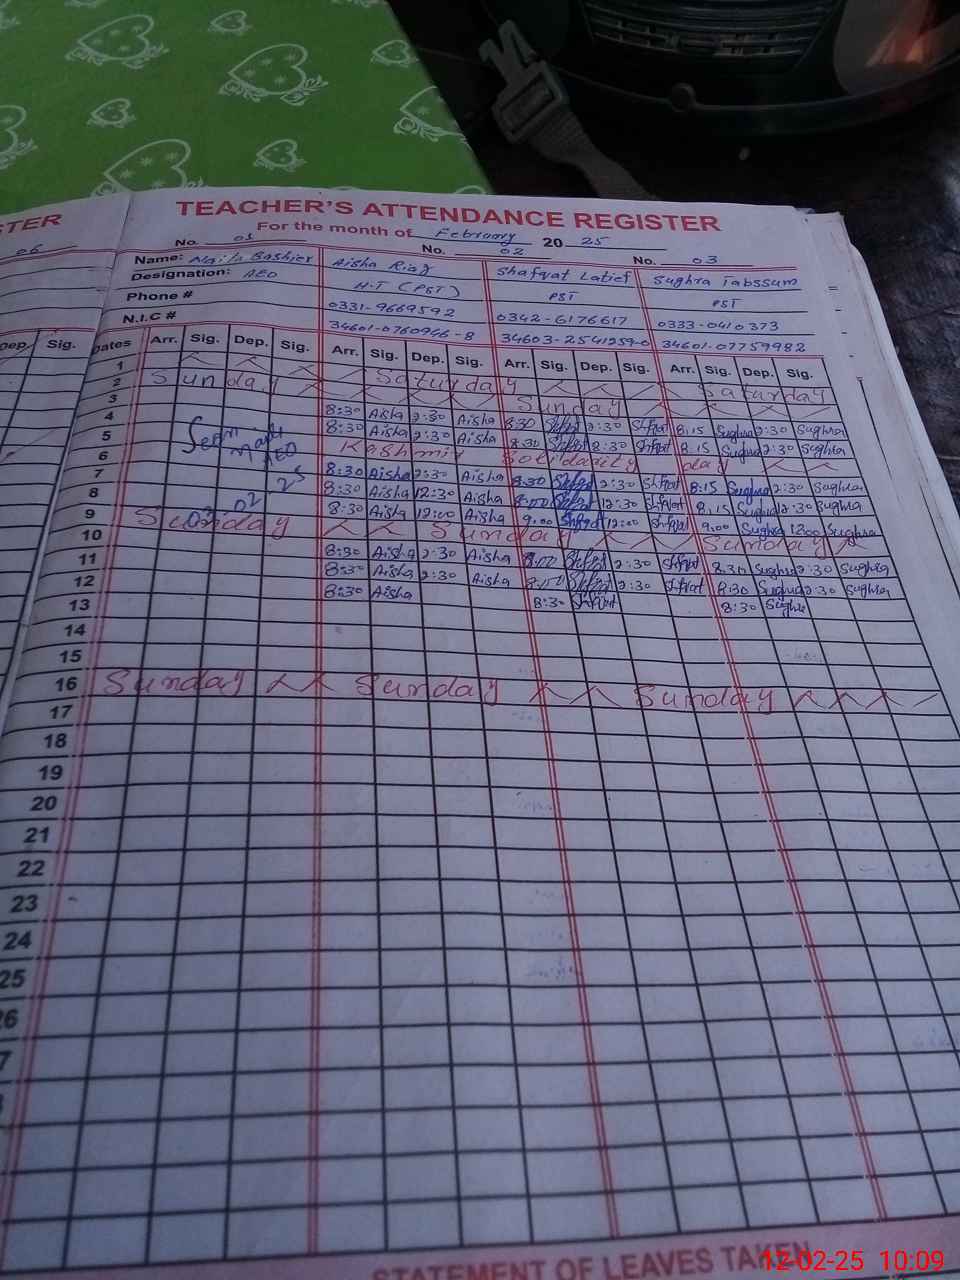 TER
TEACHER'S ATTENDANCE REGISTER
For the month of February 2025
06
No. 01 No. 02 No. 03
Name: Bashier Aisha Riaz Shafqat Latief Sughra Tabssum
Designation: AEO H.T (PST) PST PST
Phone # 0331-9669592 0342-6176617 0333-0410373
N.I.C # 34601-0760966-8 34603-2541259-0 34601-07759982
Dep. Sig. Dates Arr. Sig. Dep. Sig. Arr. Sig. Dep. Sig. Arr. Sig. Dep. Sig. Arr. Sig. Dep. Sig.
1 Saturday Saturday
2 Sunday Sunday
3 8:30 Aisha 2:30 Aisha 8:30 2:30 Shfqat 8:15 Sughra 2:30 Sughra
4 8:30 Aisha 2:30 Aisha 8:30 2:30 Shfqat 8:15 Sughra 2:30 Sughra
5 Kashmir Solidarity Day
Seen
AEO
02.25
6 8:30 Aisha 2:30 Aisha 8:30 2:30 Shfqat 8:15 Sughra 2:30 Sughra
7 8:30 Aisha 12:30 Aisha 12:30 Shfqat 8:15 Sughra Sughra
8 8:30 Aisha 12:00 Aisha 9:00 12:00 Shfqat 9:00 Sughra 1200 Sughra
9 Sunday Sunday Sunday
10 8:30 Aisha 2:30 Aisha 2:30 Shfqat 8:30 Sughra 2:30 Sughra
11 8:30 Aisha 2:30 Aisha 2:30 Shfqat 8:30 Sughra 2:30 Sughra
12 8:30 Aisha 8:30 Shfqat 8:30 Sughra
13
14
15
16 Sunday Sunday Sunday
17
18
19
20
21
22
23
24
25
26
7
STATEMENT OF LEAVES TAKEN
12-02-25 10:09